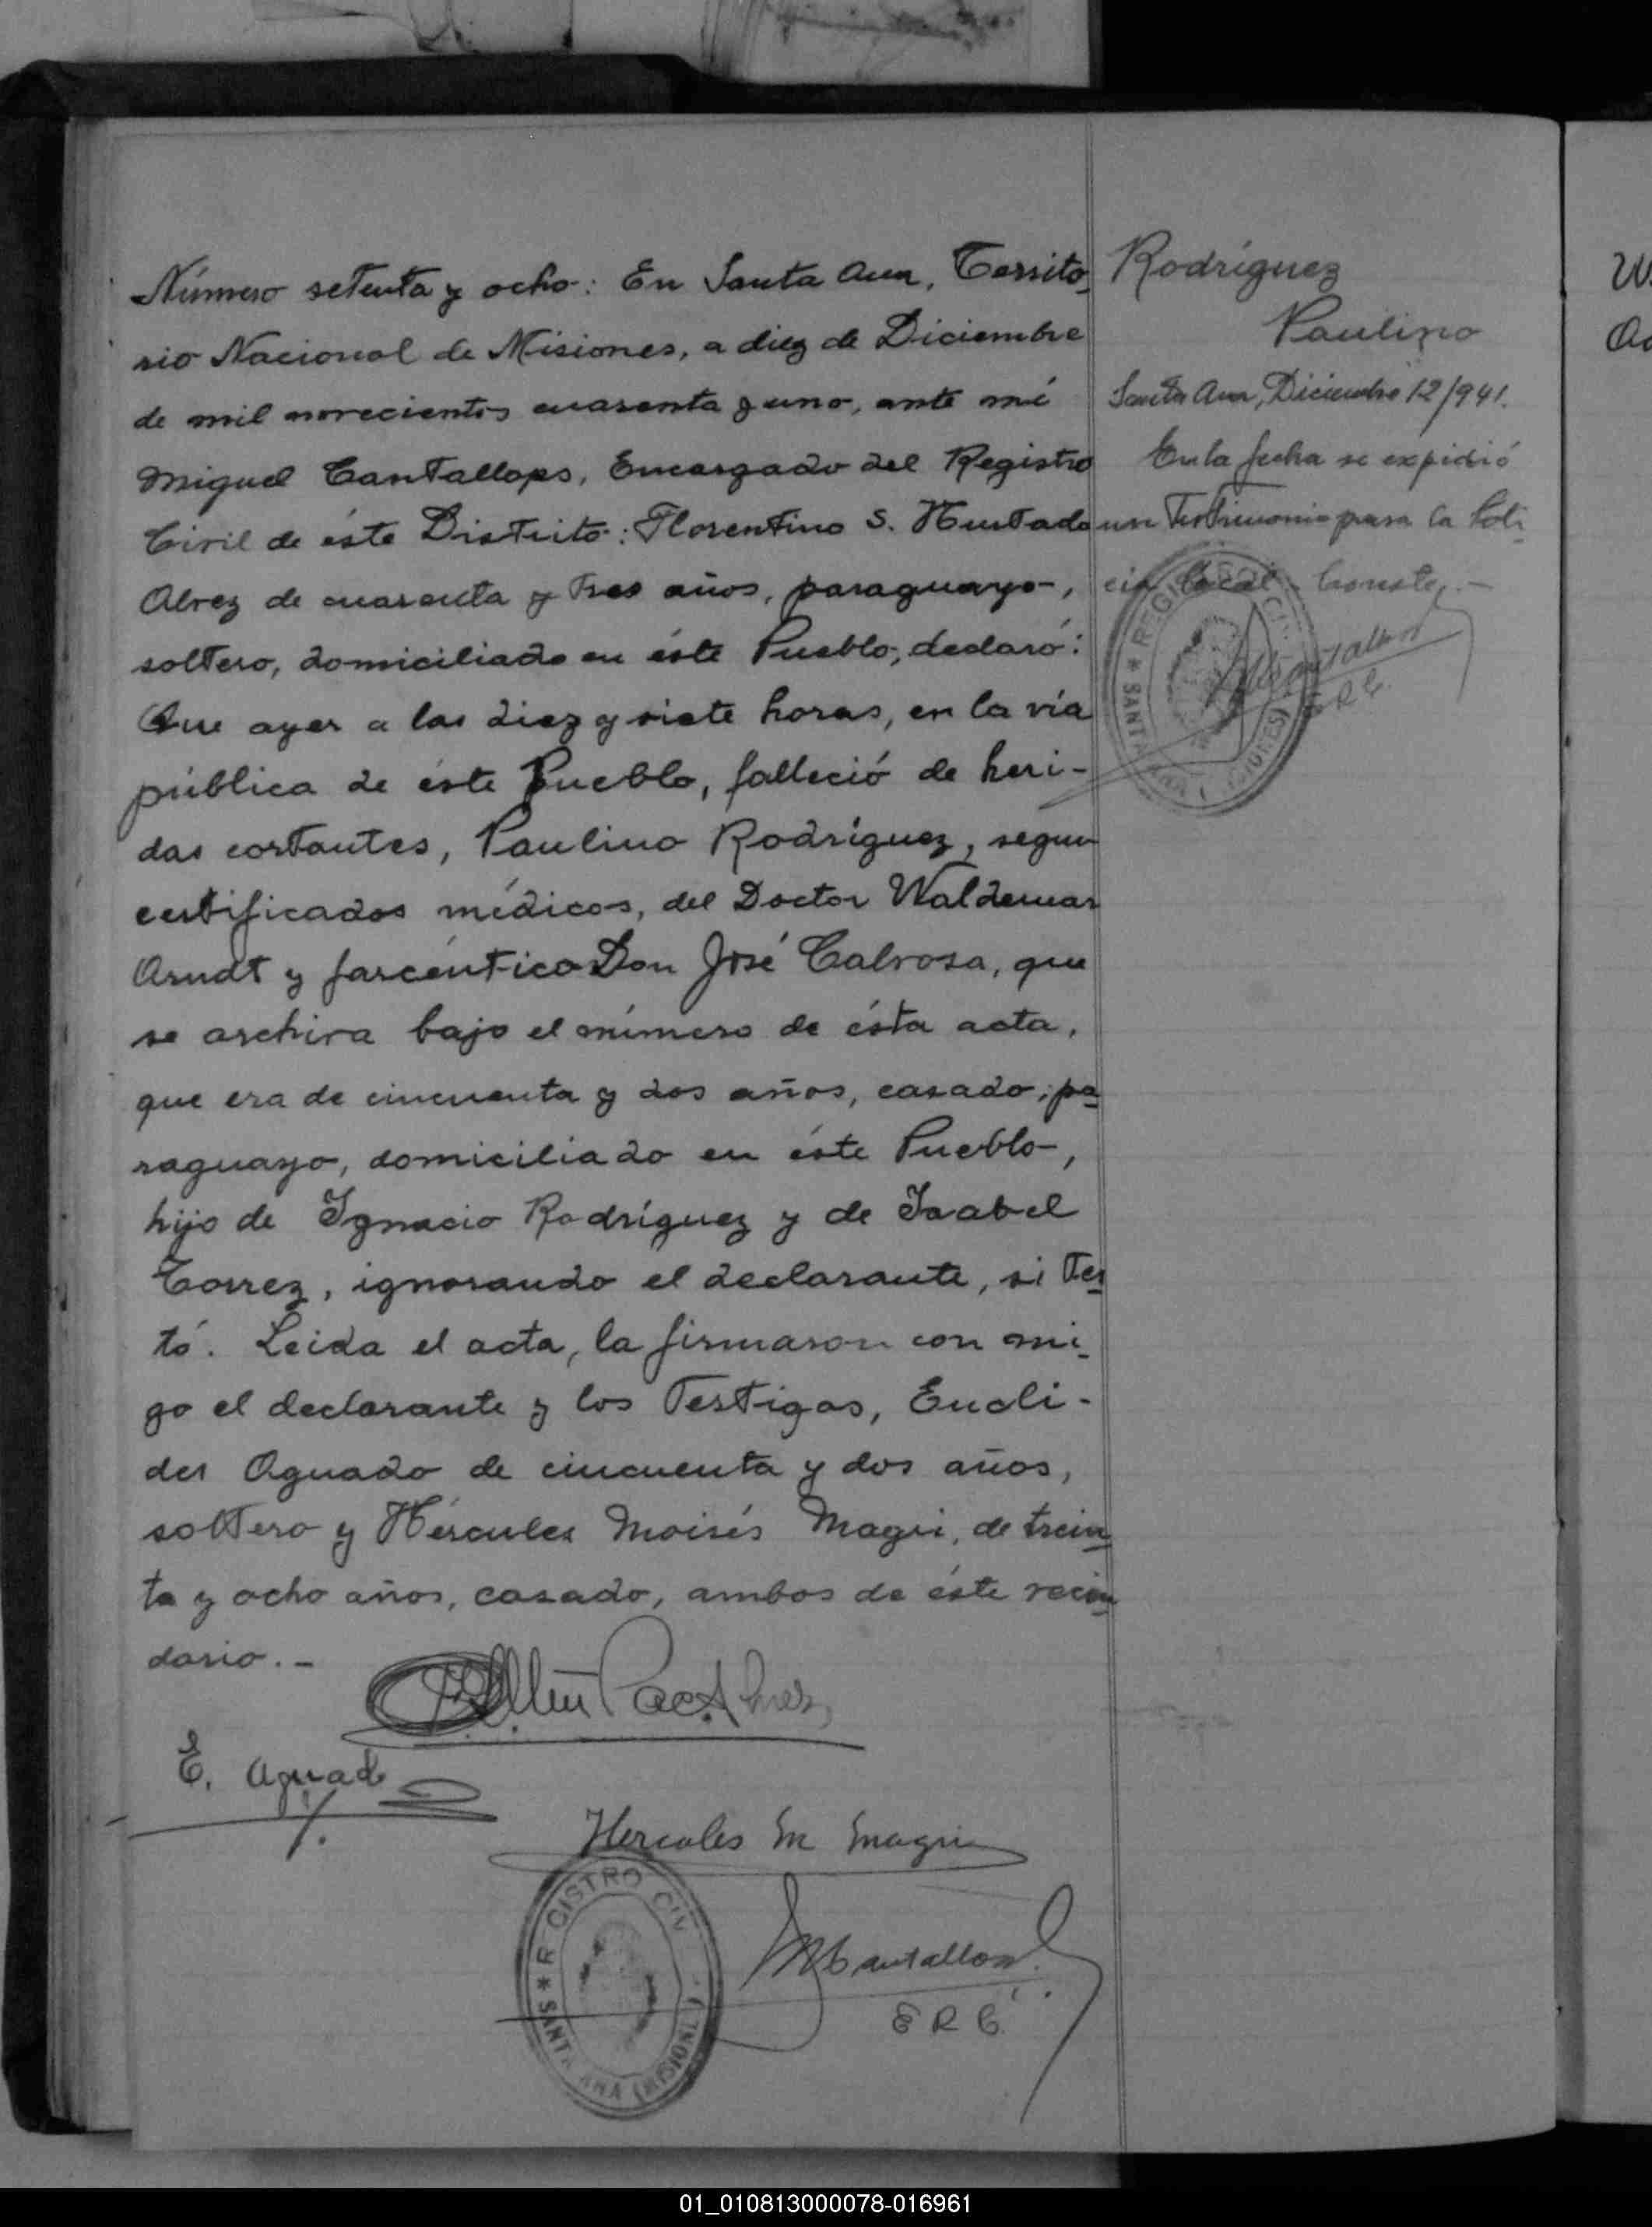 Número setenta y ocho: En Santa Ana, Territo
rio Nacional de Misiones, a diez de Diciembre
de mil novecientos cuarenta y uno, ante mí
Miguel Cantallops, Encargado del Registro
Civil de éste Distrito: Florentino S. Hurtado
Alvez de cuarenta y tres años, paraguayo-,
soltero, domiciliado en éste Pueblo, declaró:
Que ayer a las diez y siete horas, en la vía
pública de éste Pueblo, falleció de heri-
das cortantes, Paulino Rodríguez, segun
certificados médicos, del Doctor Waldemar
Arndt y farcéutico Don José Calvosa, que
se archiva bajo el número de ésta acta,
que era de cincuenta y dos años, casado, pa
raguayo, domiciliado en éste Pueblo-,
hijo de Ignacio Rodríguez y de Isabel
Torrez, ignorando el declarante, si tes
tó. Leida el acta, la firmaron con mi
go el declarante y los testigos, Eucli-
des Aguado de cincuenta y dos años,
soltero y Hércules Moisés Magri, de trein
ta y ocho años, casado, ambos de éste vecin
dario.-
E. Aguado
Hercules M Magri
REGISTRO CIV
SANTA ANA (MISIONES)
MCantallops
E R C
Rodríguez
Paulino
Santa Ana, Diciembre 12/941.
En la fecha se expidió
un Testimonio para la Poli
cia local. Conste.-
REGISTRO CI
SANTA ANA (MISIONES)
MCantallops
E R C.
W
01_010813000078-016961